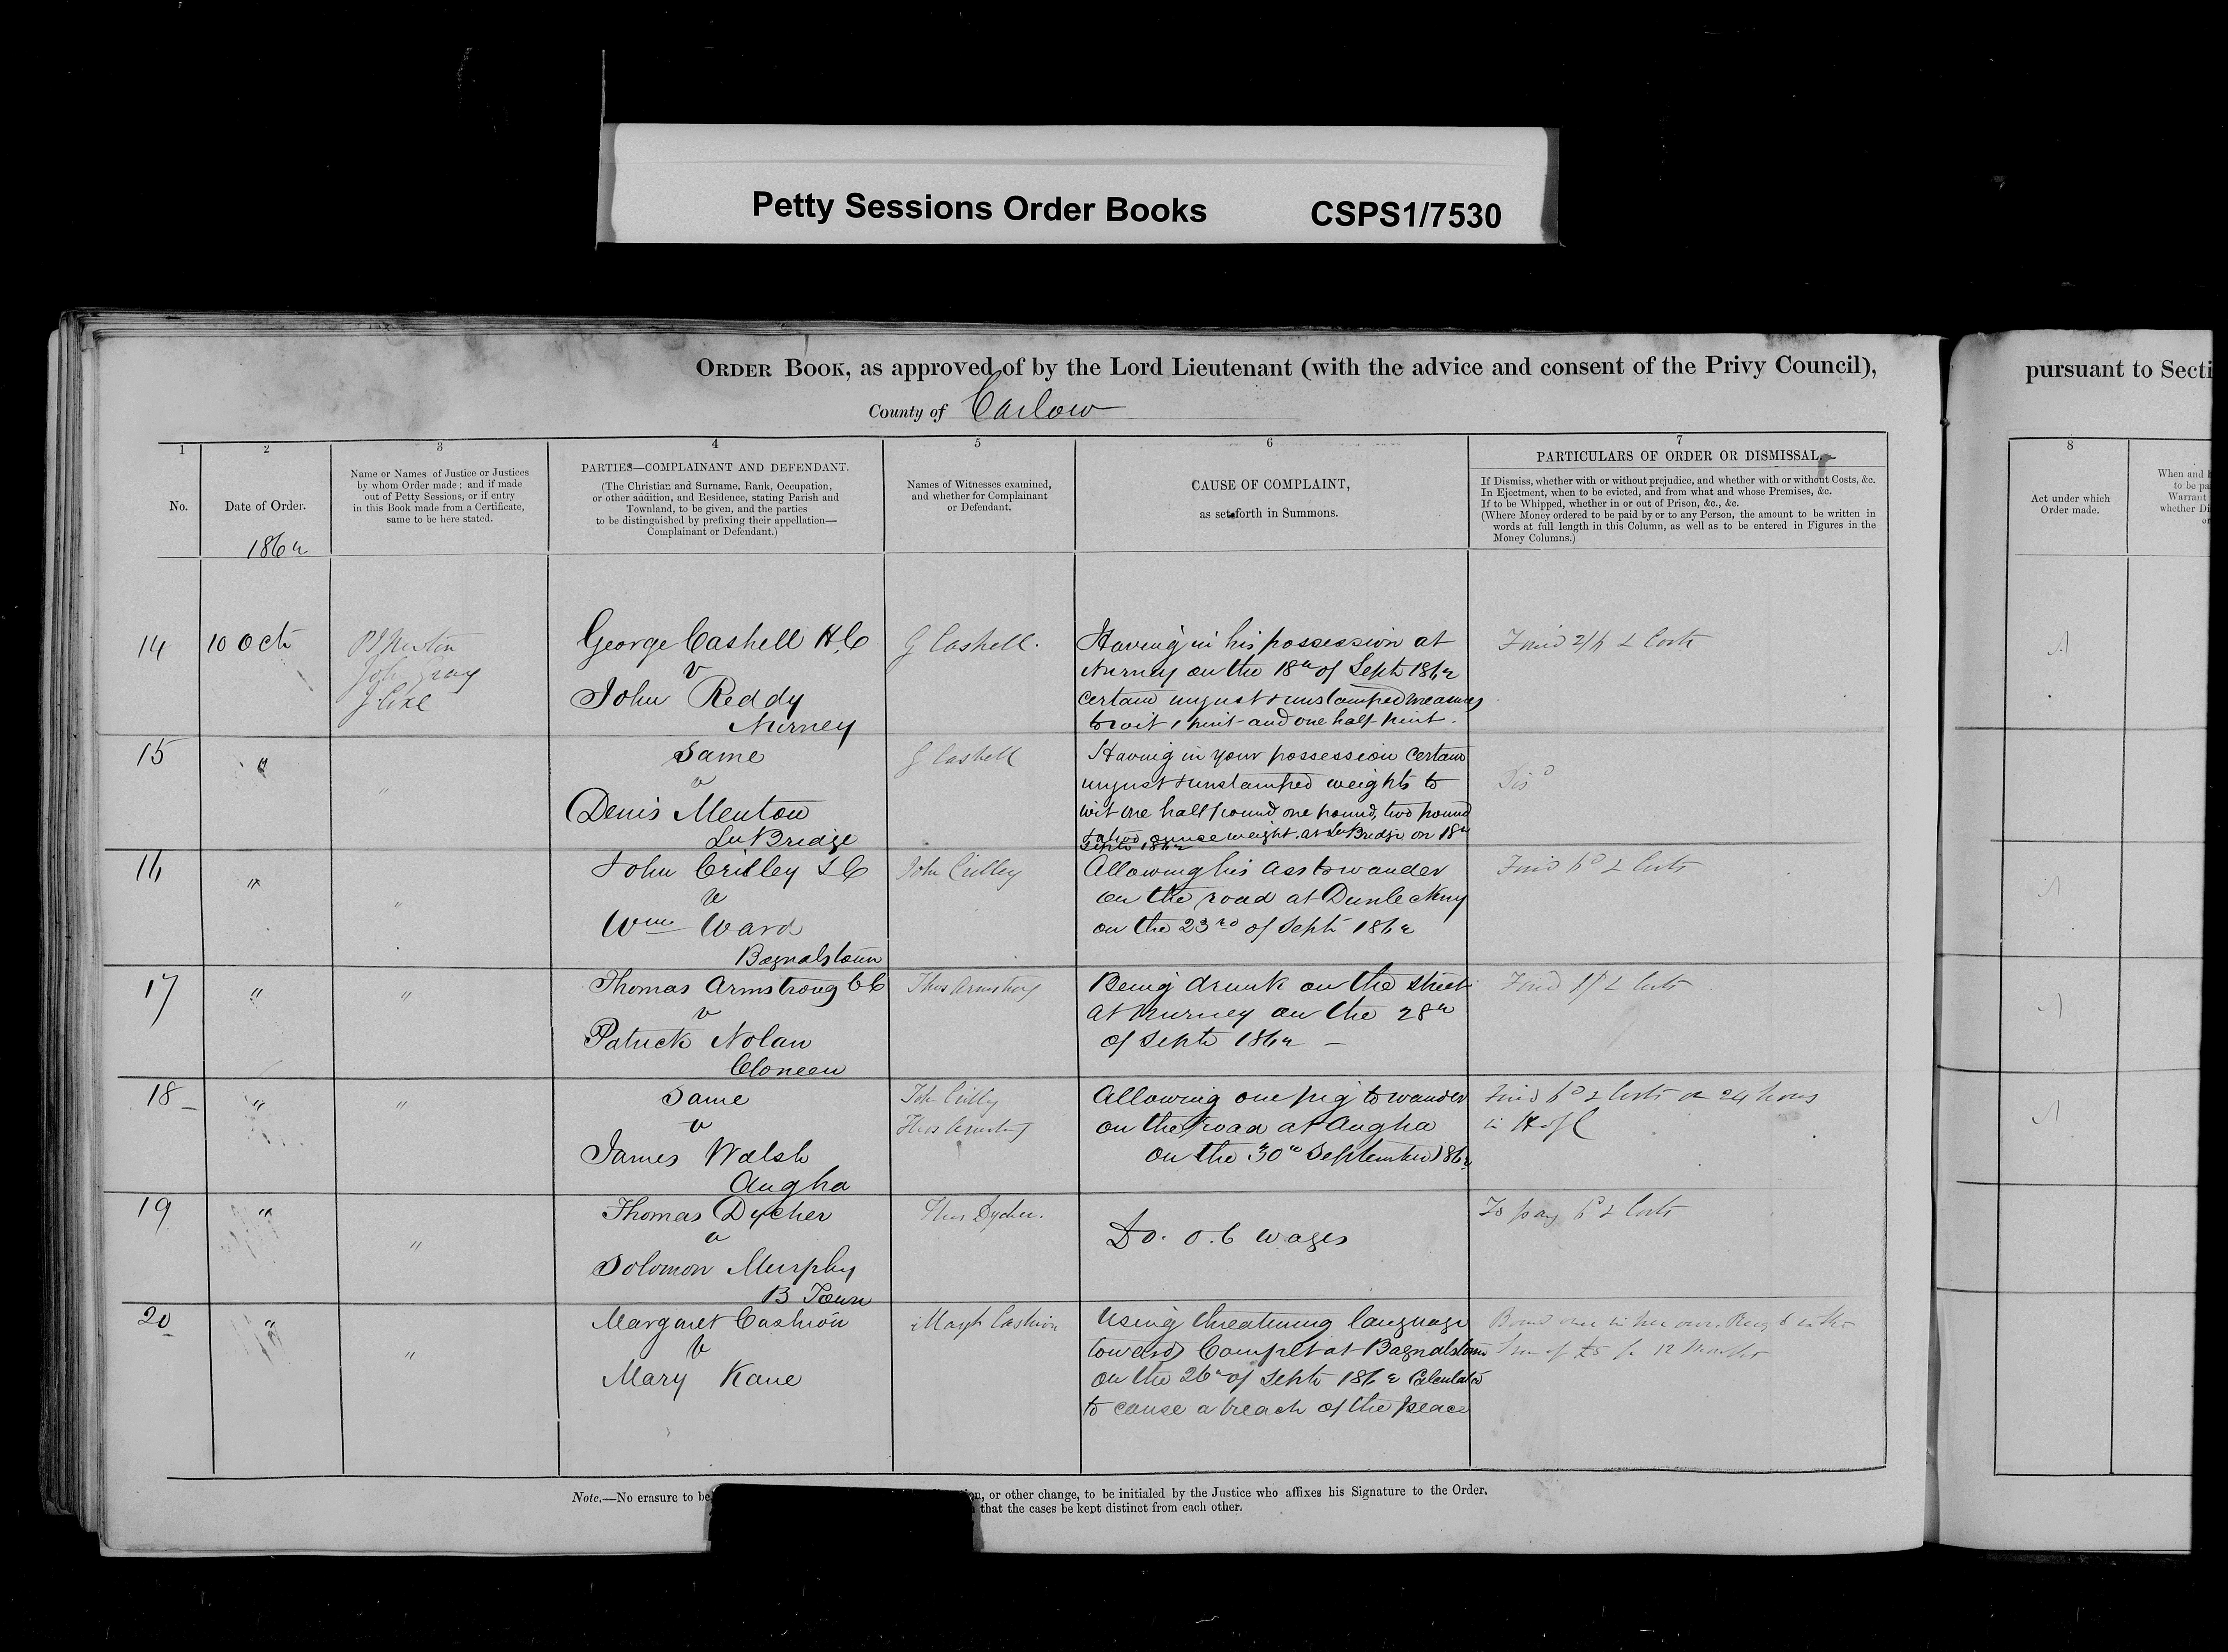 Petty Sessions Order Books CSPS1/7530
ORDER BOOK, as approved of by the Lord Lieutenant (with the advice and consent of the Privy Council),
pursuant to Secti
County of Carlow
1 2 3 4 5 6 7
No.
Date of Order.
186
Name or Names of Justice or Justices
by whom Order made; and if made
out of Petty Sessions, or if entry
in this Book made from a Certificate,
same to be here stated.
PARTIES—COMPLAINANT AND DEFENDANT.
(The Christian and Surname, Rank, Occupation,
or other addition, and Residence, stating Parish and
Townland, to be given, and the parties
to be distinguished by prefixing their appellation—
Complainant or Defendant.)
Names of Witnesses examined,
and whether for Complainant
or Defendant.
CAUSE OF COMPLAINT,
as set forth in Summons.
PARTICULARS OF ORDER OR DISMISSAL.
If Dismiss, whether with or without prejudice, and whether with or without Costs, &c.
In Ejectment, when to be evicted, and from what and whose Premises, &c.
If to be Whipped, whether in or out of Prison, &c., &c.
(Where Money ordered to be paid by or to any Person, the amount to be written in
words at full length in this Column, as well as to be entered in Figures in the
Money Columns.)
8
Act under which
Order made.
When and
to be pa
Warrant
whether Di
or
14
10 Oct
John Gray
George Cashell H.C
v
John Reddy
Nurney
G Cashell.
Having in his possession at
Nurney on the 18th of Sept 186
certain unjust & unstamped measures
to wit 1 pint and one half pint.
Fined 2/6 & Costs
15
"
"
Same
v
Denis Menton
Ln Bridge
G Cashell
Having in your possession certain
unjust & unstamped weights to
wit one half pound one pound, two pound
& a two ounce weight at Ln Bridge on 18th
Sept 186
Dis
16
"
"
John Crilley S C
v
Wm Ward
Bagnalstown
John Crilley
Allowing his ass to wander
on the road at Dunleckney
on the 23rd of Sept 186
Fined 6d & Costs
17
"
"
Thomas Armstrong C C
v
Patrick Nolan
Cloneen
Thos Armstrong
Being drunk on the street
at Nurney on the 28th
of Sept 186 –
Fined 1/ & Costs
18
"
"
Same
v
James Walsh
Augha
John Crilly
Thos Armstrong
Allowing one pig to wander
on the road at Augha
on the 30th September 186
Fined 6d & Costs or 24 hours
in H of C
19
"
"
Thomas Dycher
v
Solomon Murphy
B Town
Thos Dycher.
Do. o.6 wages
To pay 6d & Costs
20
"
"
Margaret Cashion
v
Mary Kane
Margt Cashion
Using threatening language
towards Complt at Bagnalstown
on the 26th of Sept 186 Calculated
to cause a breach of the peace
Bound over in her own
Sum of £5 for 12 Months
Note.—No erasure to be
on, or other change, to be initialed by the Justice who affixes his Signature to the Order.
that the cases be kept distinct from each other.